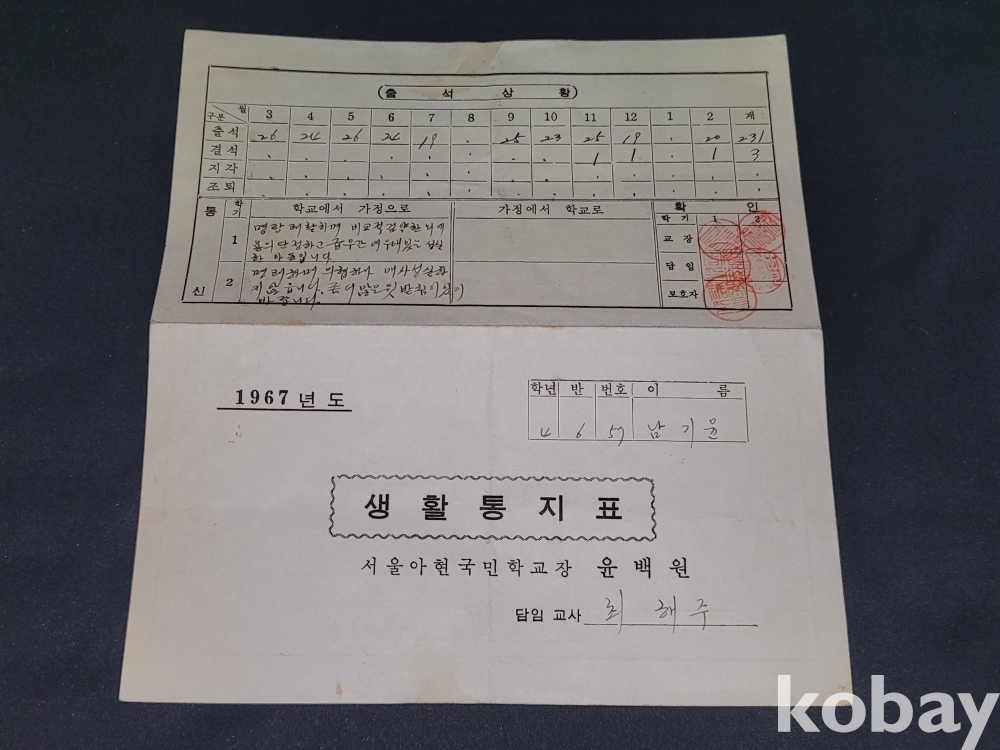 (출 석 상 황)
구분 월 3 4 5 6 7 8 9 10 11 12 1 2 계
출석 26 24 26 24 19 . 25 23 25 19 . 20 231
결석 . . . . . . . . 1 1 . 1 3
지각 . . . . . . . . . . . . .
조퇴 . . . . . . . . . . . . .
통신 학기 학교에서 가정으로 가정에서 학교로 확 인
학 기 1 2
1 명랑 쾌활하며 비교적
용의단정하고 급우간에
한 아동입니다.
교 장
담 임
2 명랑하며
지않습니다. 좀더 많은 뒷받침이 있기
바랍니다.
보호자
1967년도
학년 반 번호 이 름
4 6 57 남 기 윤
생활통지표
서울아현국민학교장 윤백원
담임 교사 최 해 주
kobay